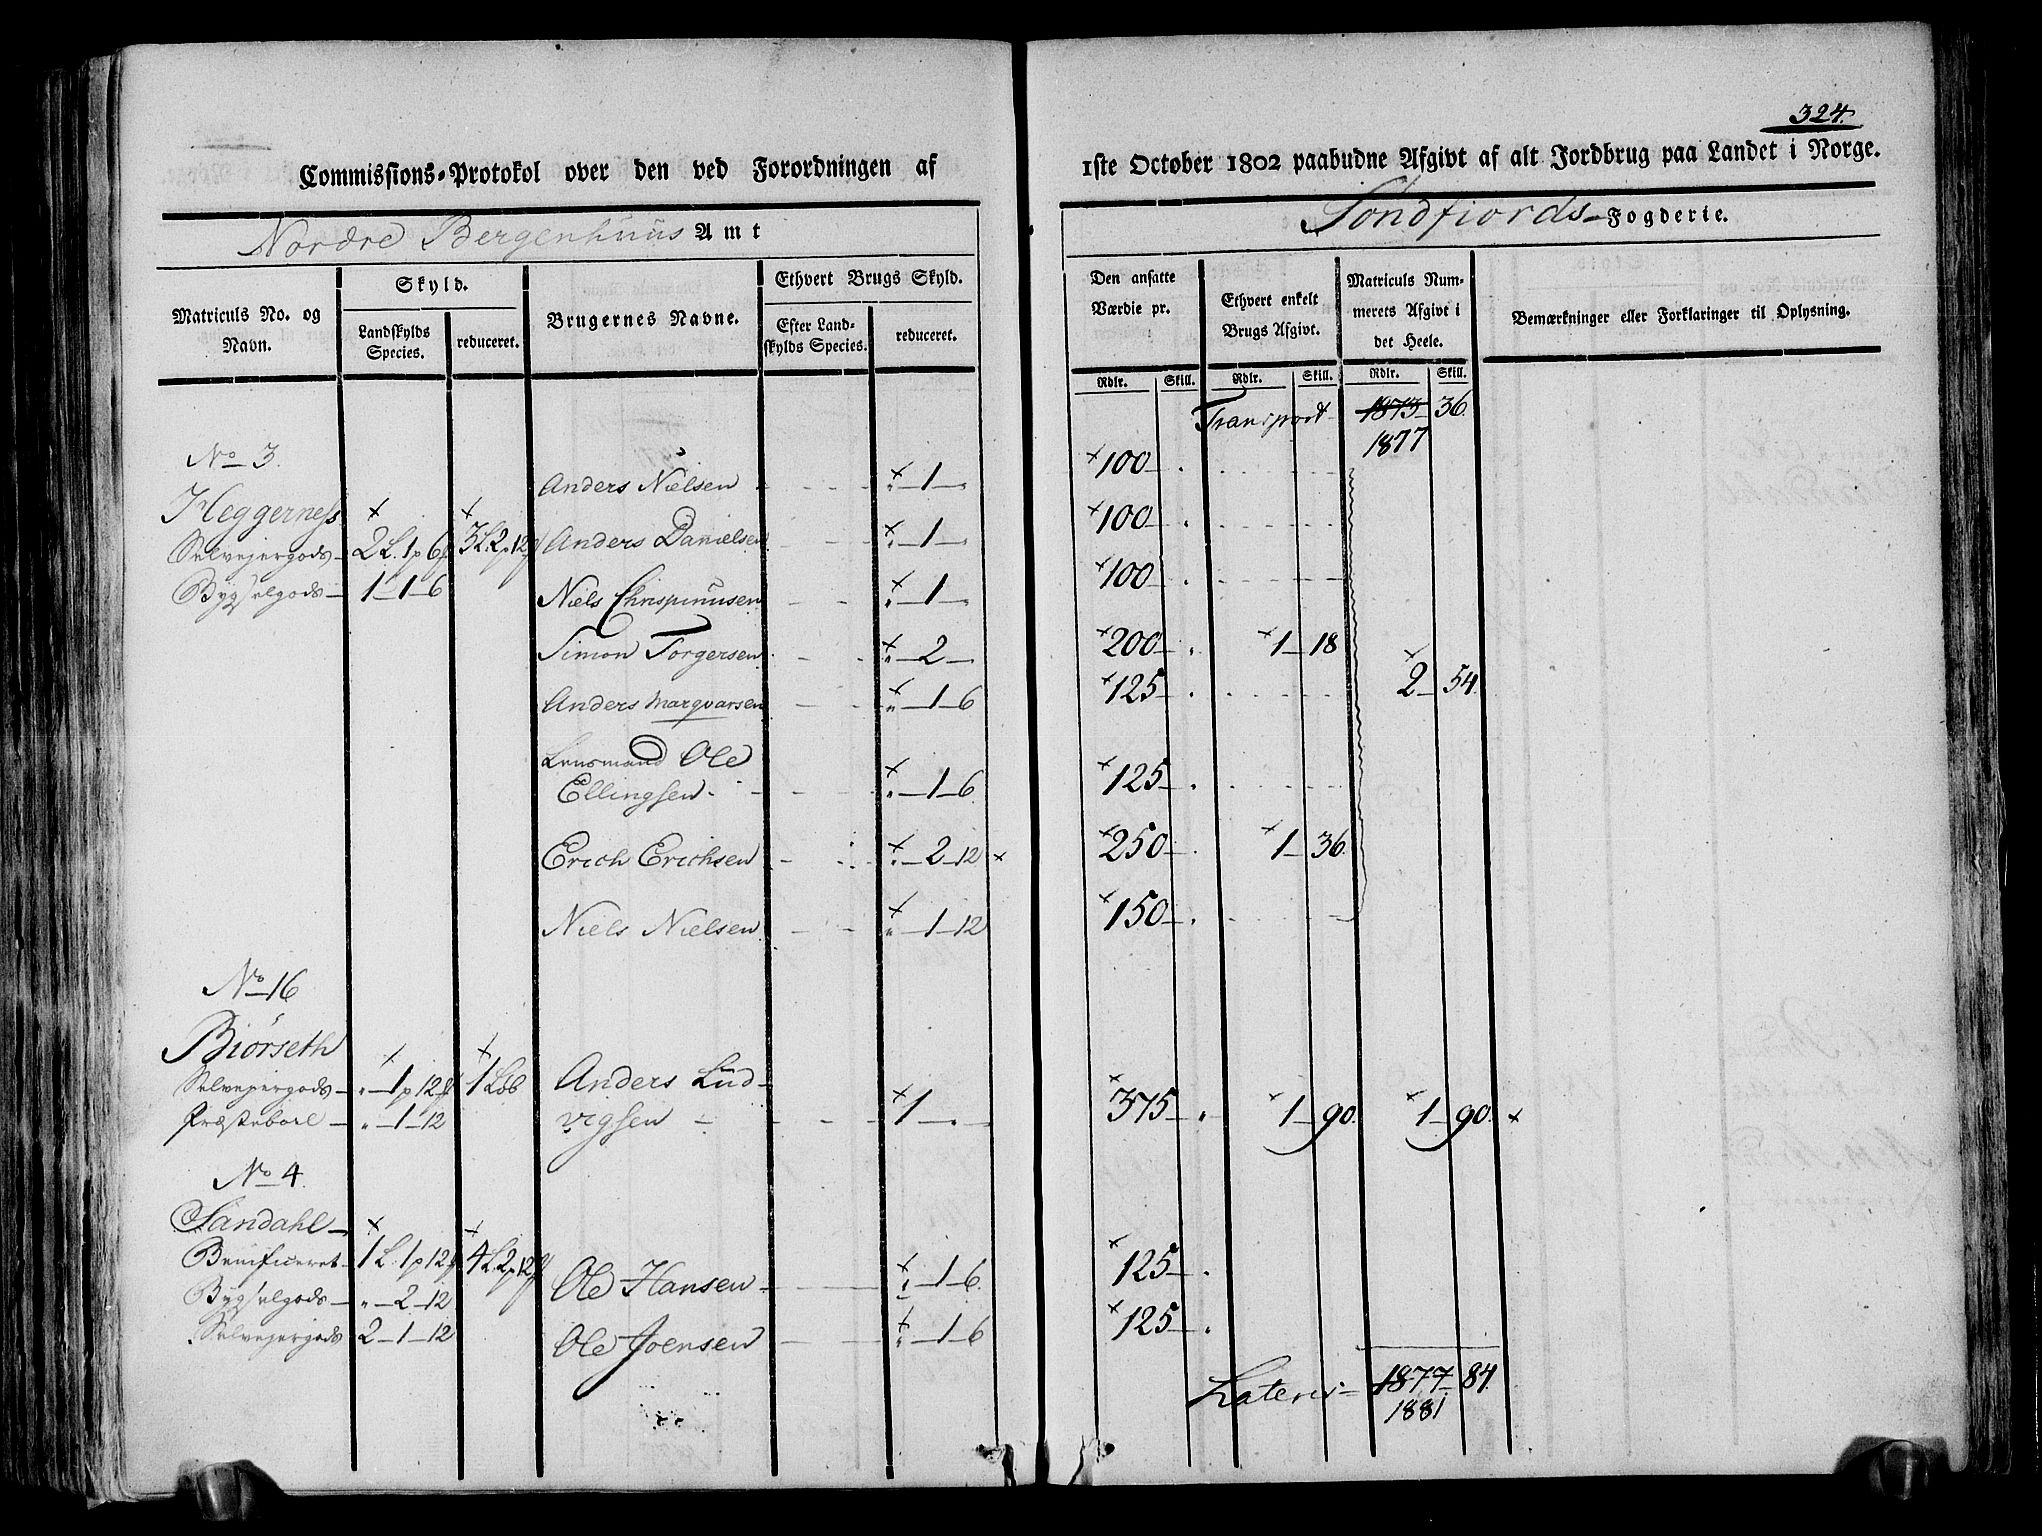 324.
Commissions-Protokol over den ved Forordningen af 1ste October 1802 paabudne Afgivt af alt Jordbrug paa Landet i Norge.
Nordre Bergenhuus Amt
Søndfiords Fogderie.
Matriculs No. og Navn.
Skyld.
Landskylds Species.
reduceret.
Brugernes Navne.
Ethvert Brugs Skyld.
Efter Landskylds Species.
reduceret.
Den ansatte Værdie pr.
Ethvert enkelt Brugs Afgivt.
Matriculs Nummerets Afgivt i det Heele.
Bemærkninger eller Forklaringer til Oplysning.
Rdlr. Skill. Rdlr. Skill. Rdlr. Skill.
Transport 1873 36.
1877
No 3.
Anders Nielsen × " 1 " × 100 .
Heggerness × ×
Selvejergods 2 L. 1 p 6 3 L. 2 p 12 Anders Danielsen × " 1 " × 100 .
Bygselgods 1 1 6 Niels Chrispinusen × " 1 " × 100 .
Simon Torgersen × " 2 × 200 . × 1 18
Anders Marqvarsen × " 1 6 × 125 . × 2 54.
Lensmand Ole
Ellingsen × " 1 6. × 125 .
Erich Erichsen × " 2 12 × × 250 . × 1 36.
Niels Nielsen × " 1 12 × 150 .
No 16
Biörseth × ×
Selvejergods " 1 p 12 1 Løb Anders Lud-
Præstebool " 1 12 vigsen × 1 " × 375 . × 1 90. × 1 90. ×
No 4
Sandahl × ×
Benificeret 1 L. 1 p 12 4 L. 2 p 12 Ole Hansen × " 1 6. × 125 .
Bygselgods " 2 12
Selvejergods 2 1 12 Ole Joensen × " 1 6 × 125 .
Lateris 1877 84.
1881